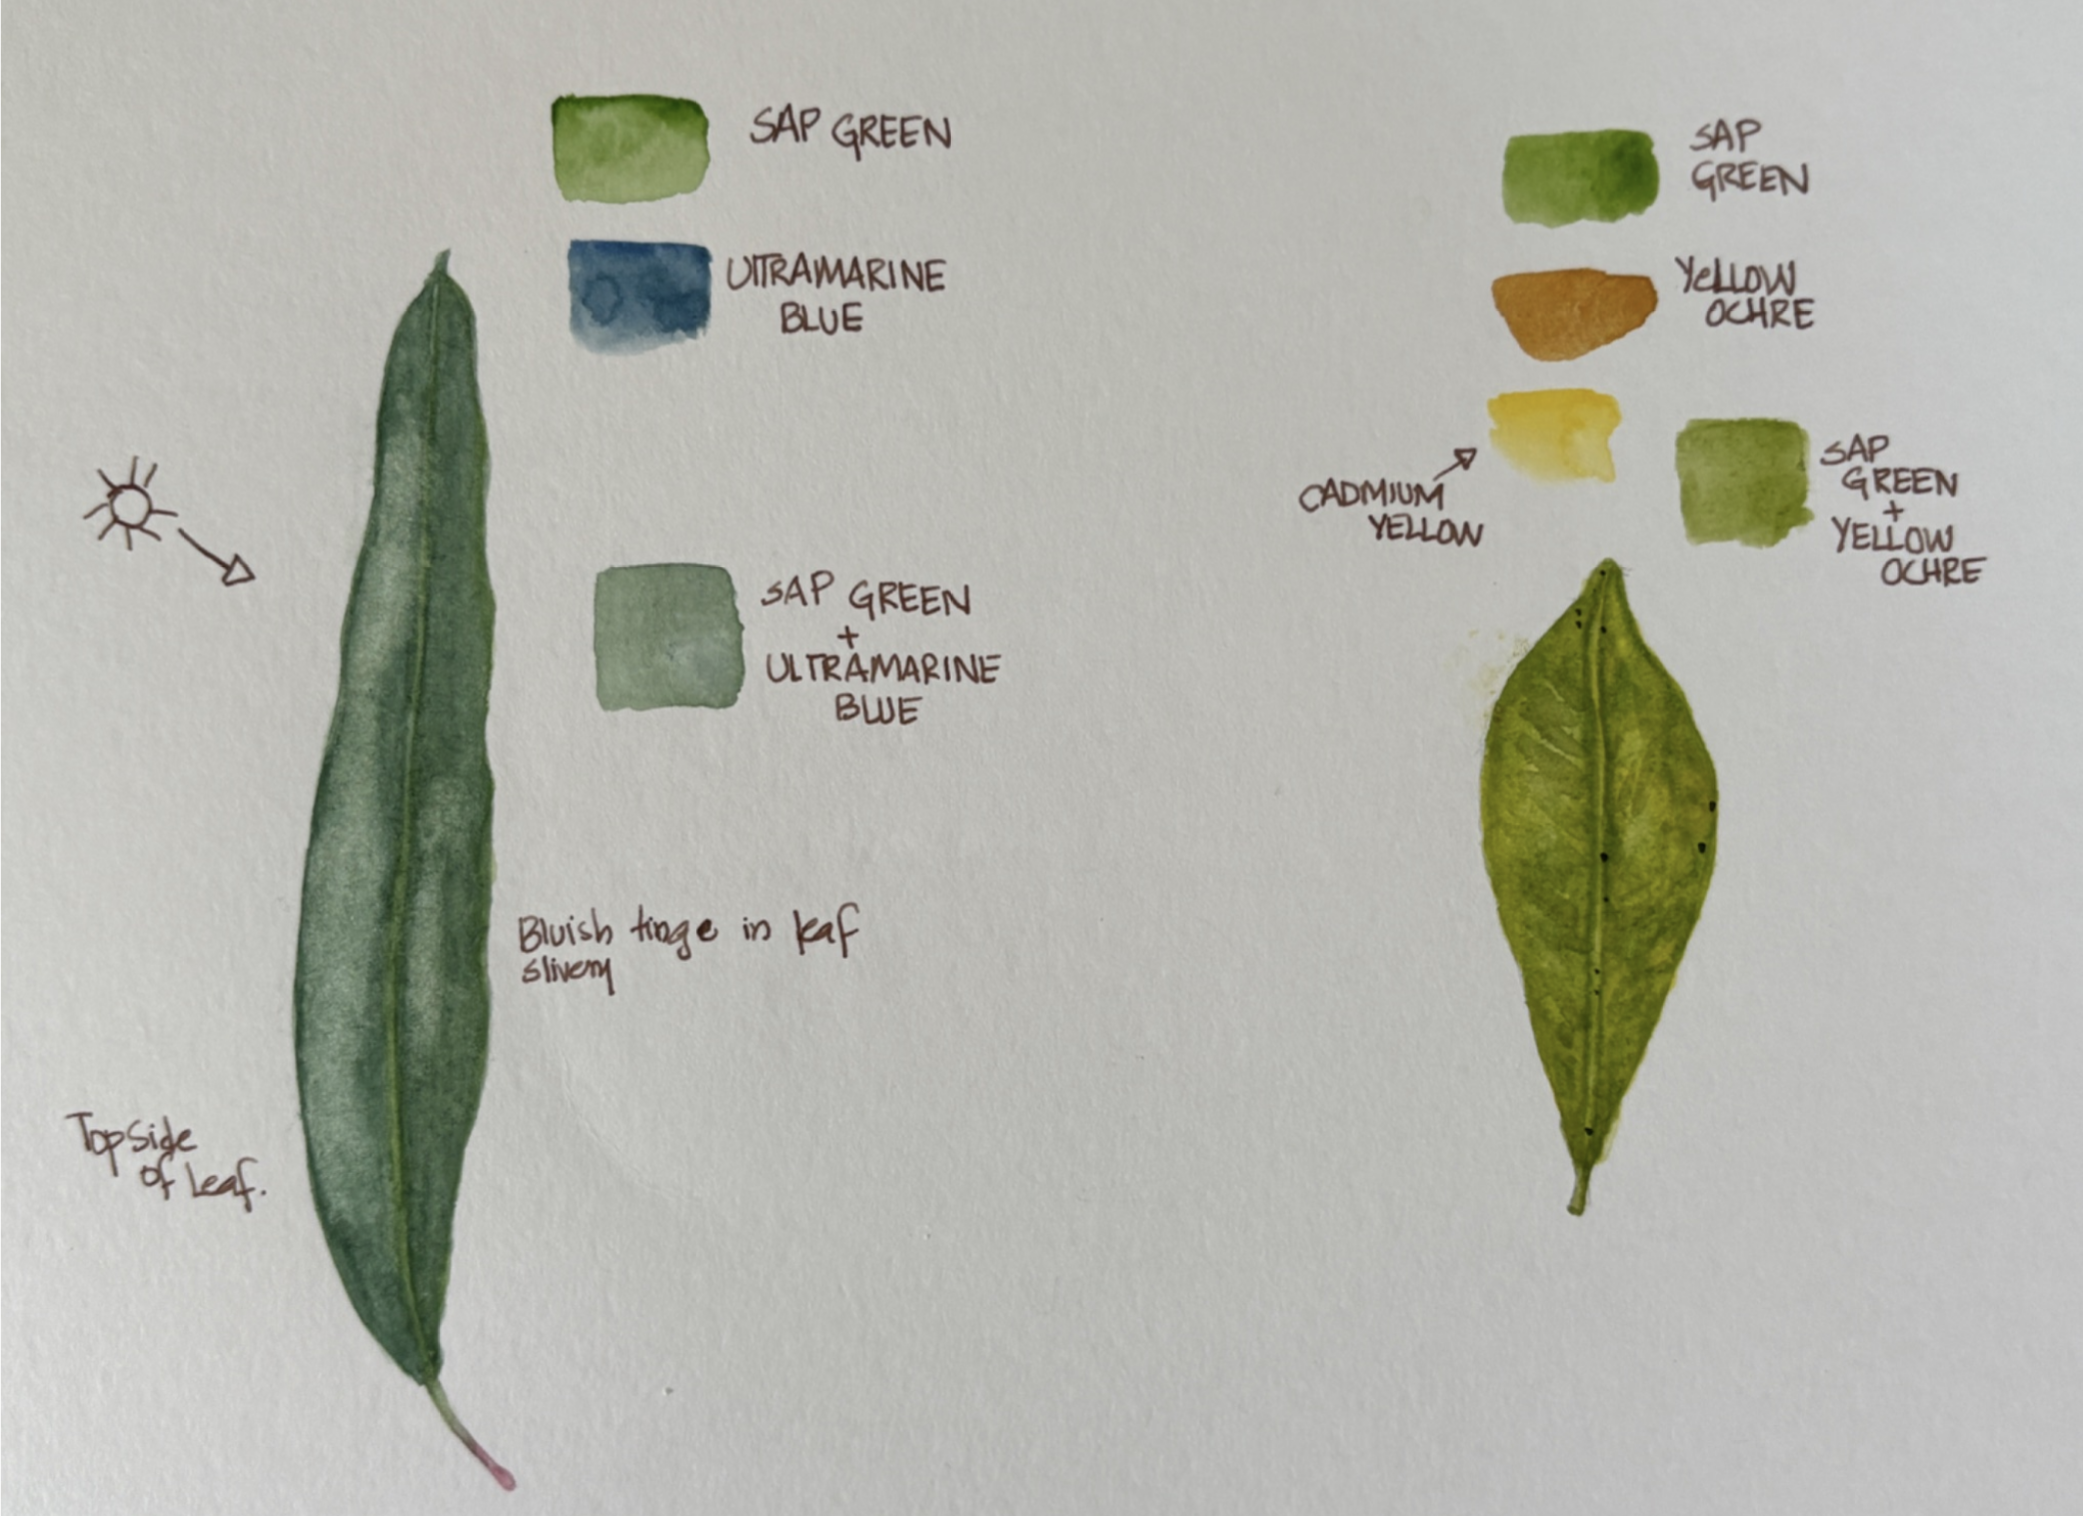 SAP GREEN
UlTRAMARINE
BLUE
SAP GREEN
+
ULTRAMARINE
BLUE
Bluish tinge in leaf
slivery
Topside
of Leaf.
SAP
GREEN
YeLLOW
OCHRE
CADMIUM
YELLOW
SAP
GREEN
+
YELLOW
OCHRE